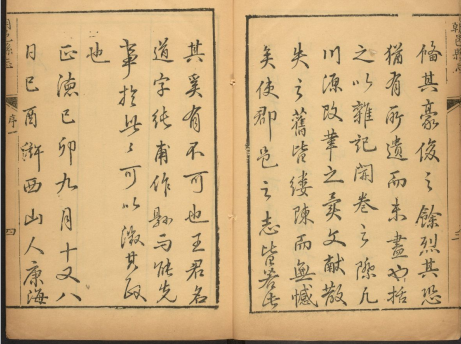 朝邑縣志
脩其豪俊之餘烈其恐
猶有所遺而未盡也括
之以雜記開卷之際凡
川源改革之文献散
失之舊皆縷陳而無憾
矣使郡邑之志皆若此
其奚有不可也王君名
道字純甫作縣能先
事於此可以徵其政
也
正德己卯九月十又八
日己酉滸西山人康海
序
四